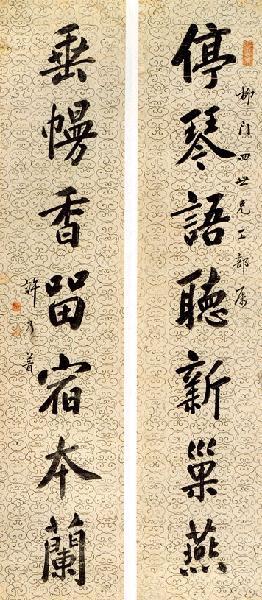 柳門四世兄工部屬
停琴語聽新巢燕
垂幔香留宿本蘭
許乃普